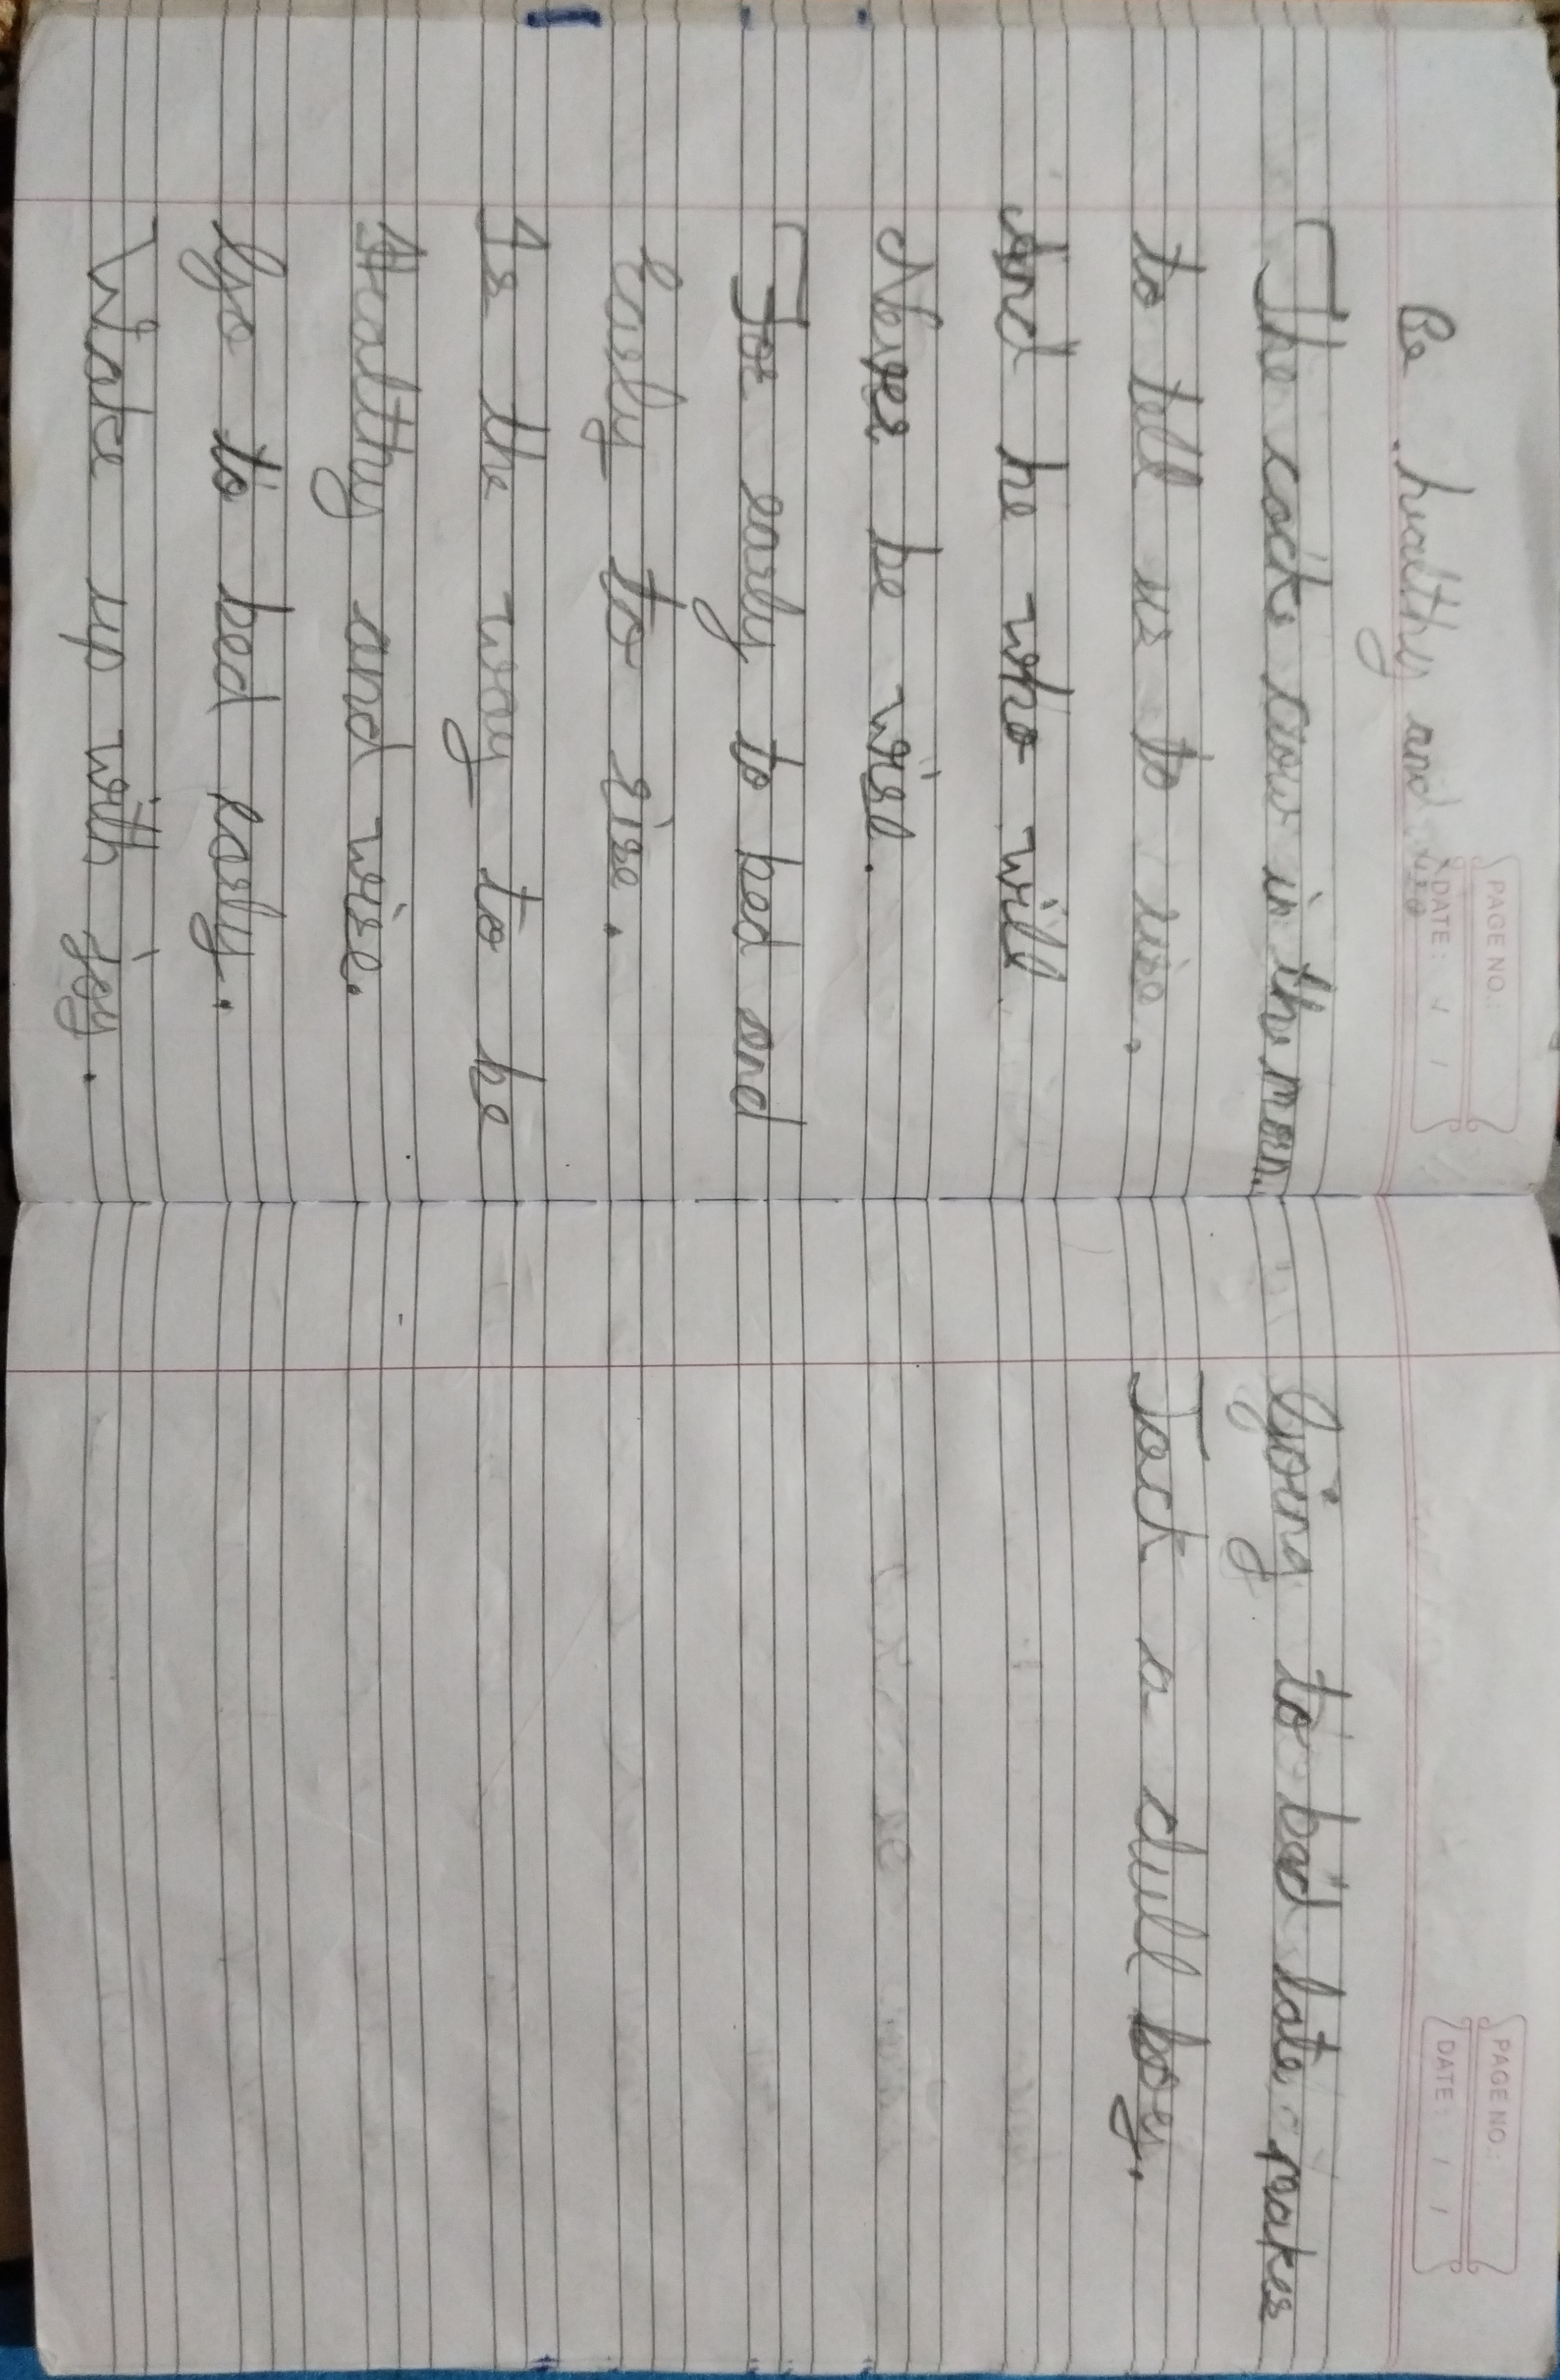 PAGE NO.:
DATE: / /
Be healthy and wise
The cocks crow in the morn
to tell us to rise.
And he who will
Never be wise.
For early to bed and
Early to rise.
Is the way to be
Healthy and wise.
Go to bed early.
Wake up with joy.
PAGE NO.:
DATE: / /
Going to bad late makes
Jack a dull boy.